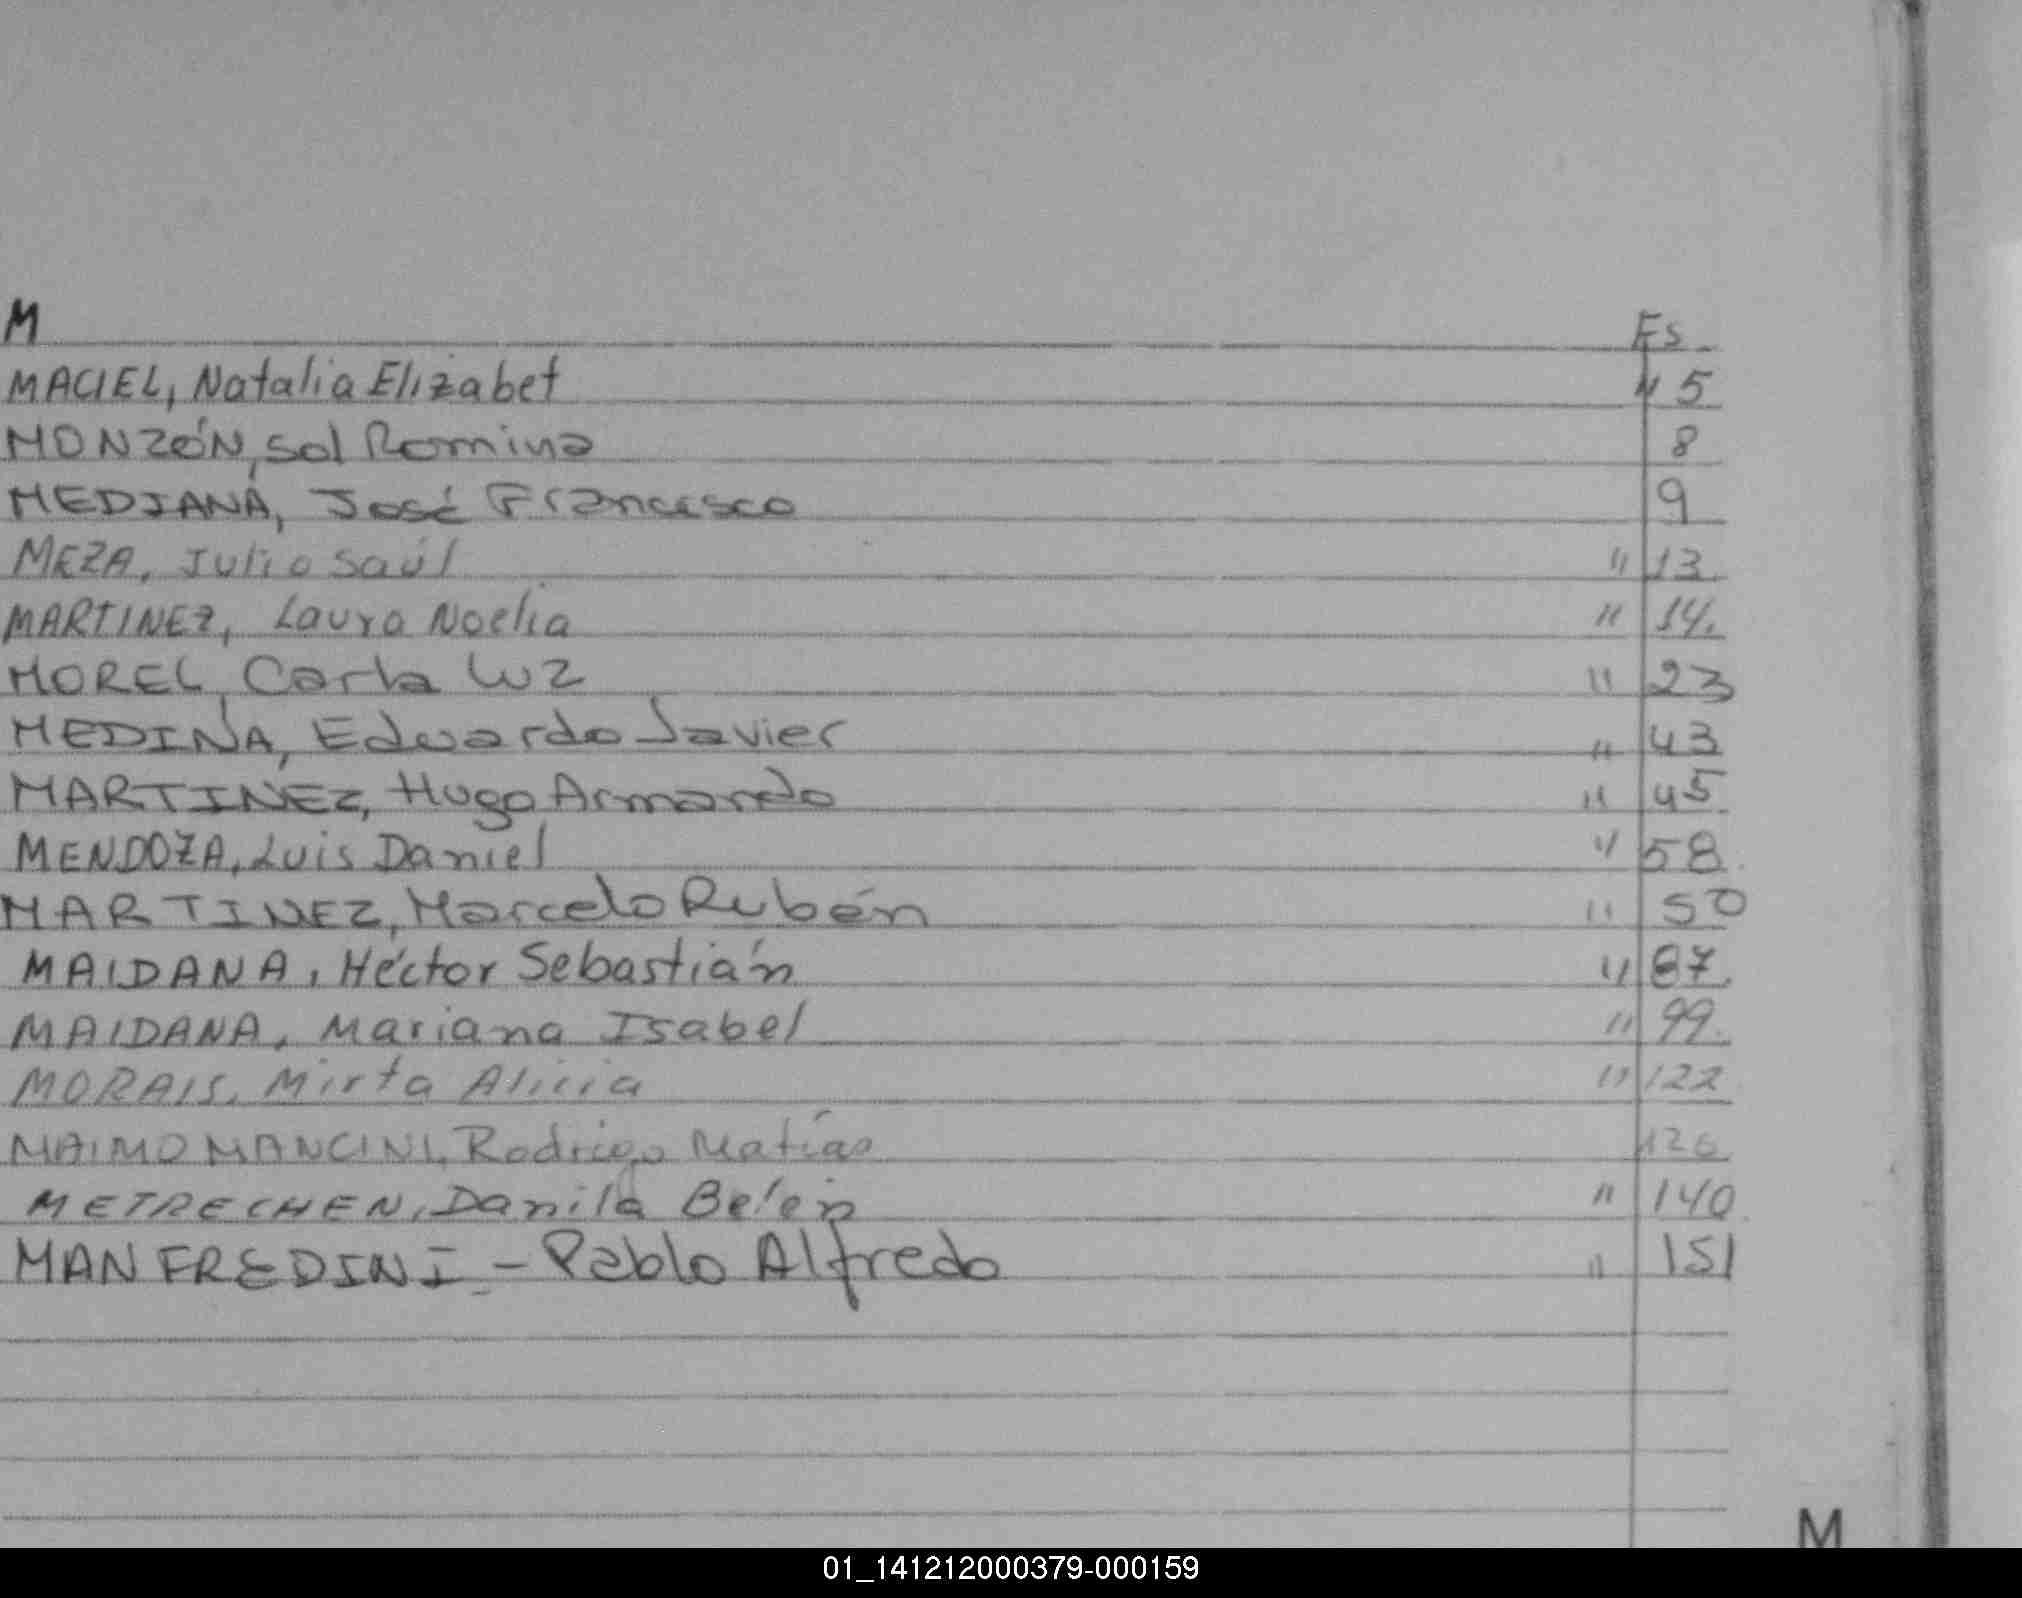 M Fs.
MACIEL, Natalia Elizabet " 5
MONZÓN, Sol Romina 8
MEDIANA, José Francisco 9
MEZA, Julio Saúl " 13
MARTINEZ, Laura Noelia " 14.
MOREL, Carla Luz " 23
MEDINA, Eduardo Javier " 43
MARTINEZ, Hugo Armando " 45
MENDOZA, Luis Daniel " 58
MARTINEZ, Marcelo Rubén " 50
MAIDANA, Héctor Sebastián " 87.
MAIDANA, Mariana Isabel " 99.
MORAIS, Mirta Alicia " 122
MAIMO MANCINI, Rodrigo Matías 126
METRECHEN, Danila Belén " 140
MANFREDINI - Pablo Alfredo " 151
M
01_141212000379-000159